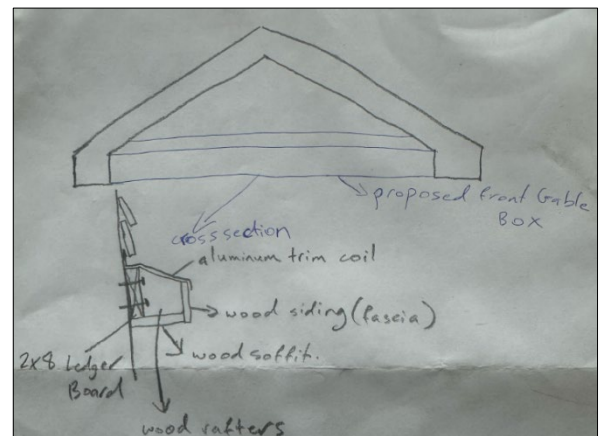 proposed front Gable
BOX
cross section
aluminum trim coil
wood siding (fascia)
wood soffit.
2x8 Ledger
Board
wood rafters